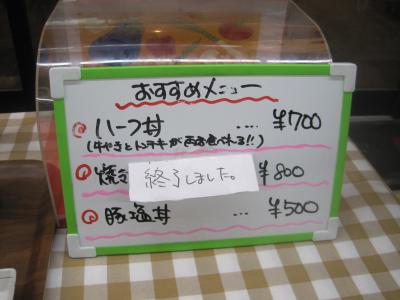 おすすめメニュー
ハーフ丼 .... ¥700
(牛やきとトンテキが両方食べれる!!)
焼 ¥800
終了しました。
豚塩丼 .... ¥500